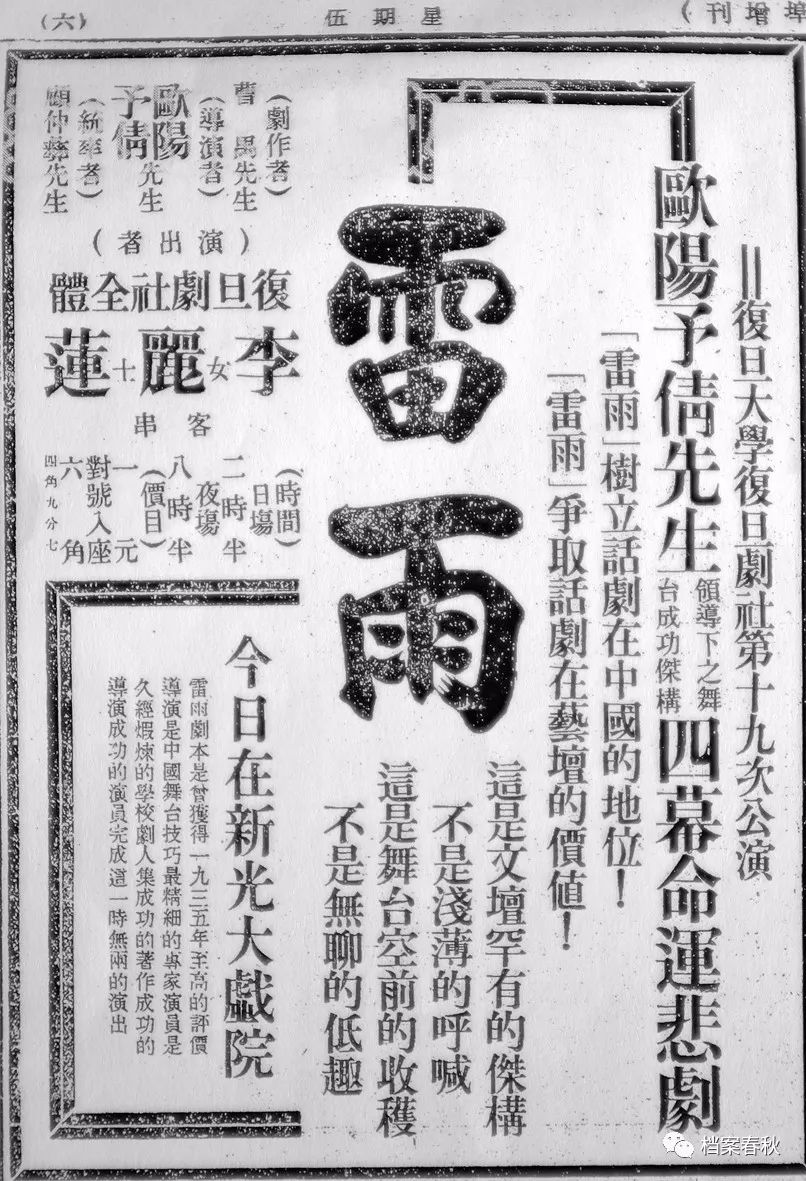 埠增刊)
星期五
(六)
‖復旦大學復旦劇社第十九次公演
歐陽予倩先生領導下之舞台成功傑構四幕命運悲劇
「雷雨」樹立話劇在中國的地位!
「雷雨」爭取話劇在藝壇的價値!
雷雨
這是文壇罕有的傑構
不是淺薄的呼喊
這是舞台空前的收穫
不是無聊的低趣
(劇作者)
曹禺先生
(導演者)
歐陽予倩先生
(統率者)
顧仲彝先生
(演出者)
復旦劇社全體
李麗蓮女士
客串
(時間)
日場
二時半
夜場
八時半
(價目)
一元
對號入座
六角
四角九分七
今日在新光大戲院
雷雨劇本是曾獲得一九三五年至高的評價
導演是中國舞台技巧最精細的專家演員是
久經煆煉的學校劇人集成功的著作成功的
導演成功的演員完成這一時無兩的演出
档案春秋